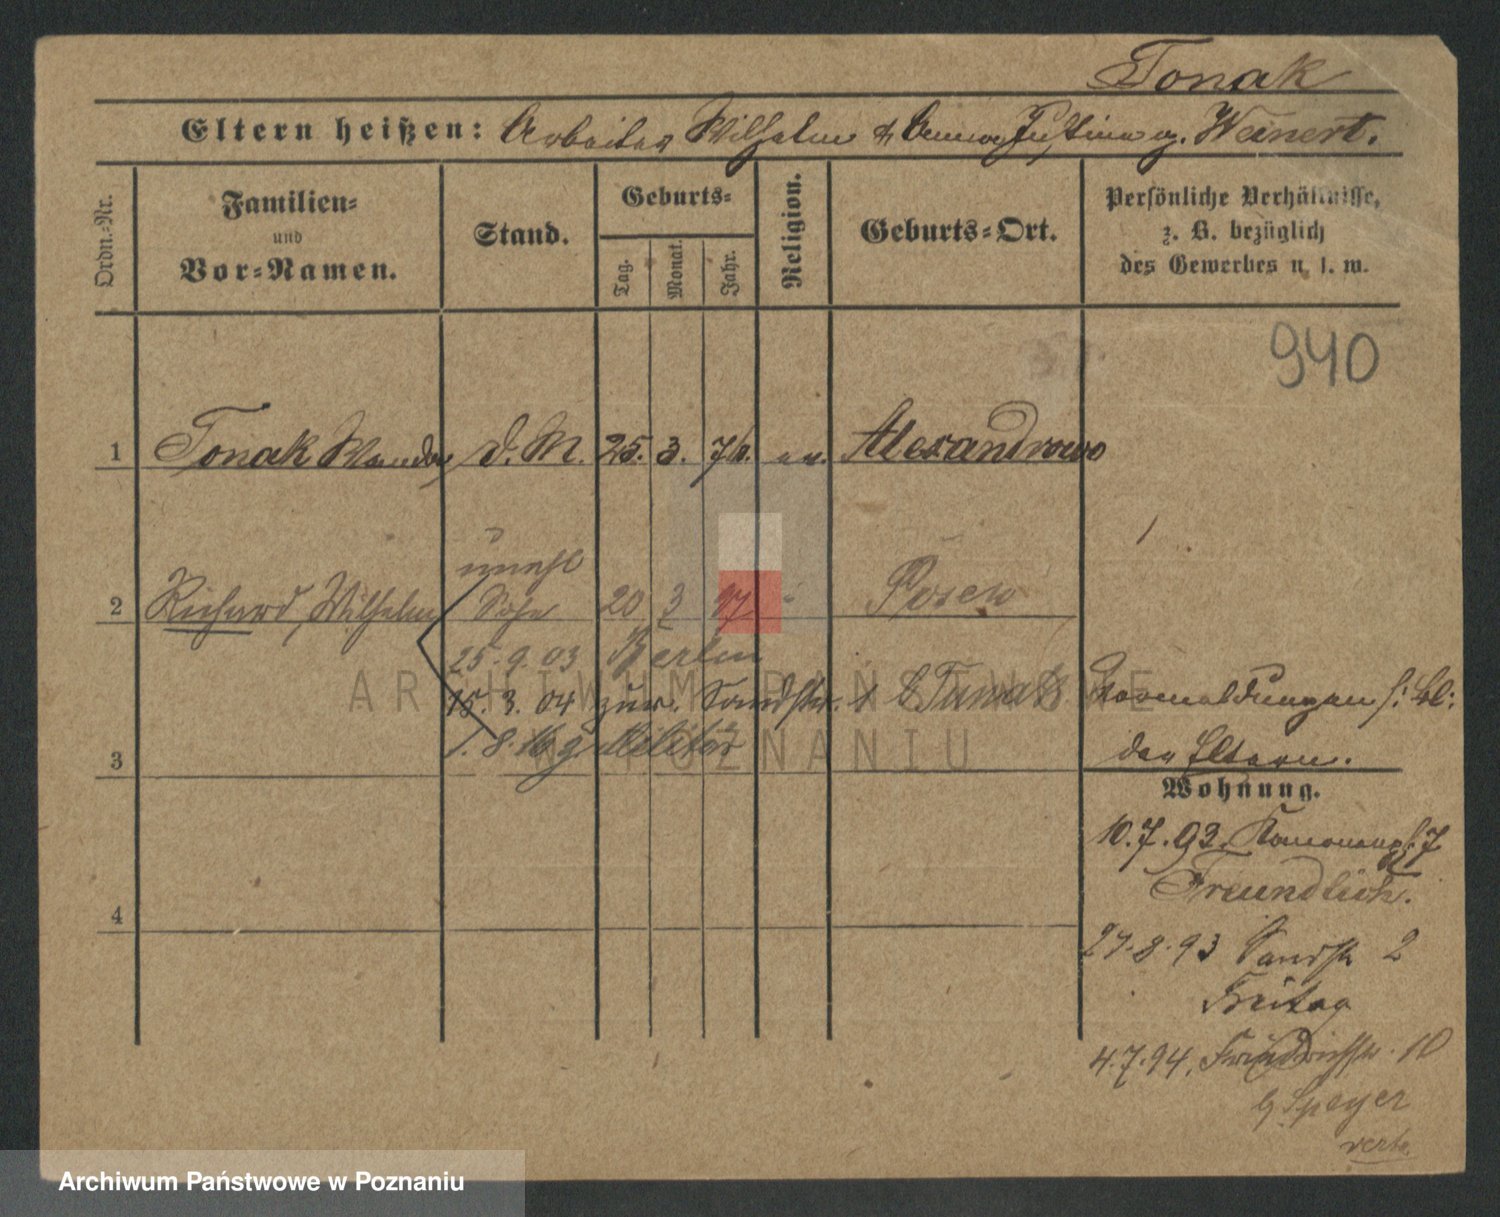 Tonak
Eltern heißen: Arbeiter Wilhelm & Anna Justina g. Weinert.
Ordn.-Nr.
Familien-
und
Vor-Namen.
Stand.
Geburts-
Tag.
Monat.
Jahr.
Religion.
Geburts-Ort.
Persönliche Verhältnisse,
z. B. bezüglich
des Gewerbes u. s. w.
940
1 Tonak Wanda d. M. 25. 3. ev. Alexandrowo
unehl
2 Richard, Wilhelm Sohn 20 3 97 Posen
25.9.03 Berlin
15.3. 04 zur. Sandstr.
1.8.16 z. Militär
3
4
Vormeldungen s: bl:
der Eltern.
Wohnung.
10.7.92. 7
Freundlich.
27.8.93 Sandstr 2
Freitag
4.7.94. Friedrichstr. 10
b Speyer
verte
ARCHIWUM PAŃSTWOWE
W POZNANIU
Archiwum Państwowe w Poznaniu